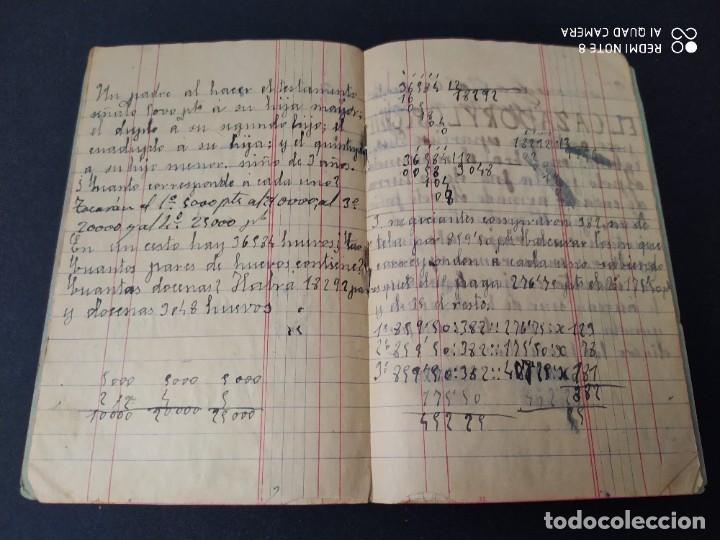 Un padre al hacer el testamento
señaló 5000 pts á su hija mayor;
el duplo á su sgundo hijo; el
cuadruplo á su hija; y el quintuplo
a su hijo menor. niño de 3 años.
¿Cuanto corresponde á cada uno?
Tocarán al 1º 5000 pts al 2º 10000 al 3º
20000 y al 4º 25000 pts
En un cesto hay 36584 huevos;
Cuantos pares de huevos contiene?
Cuantas docenas? Habrá 18292 pa
y docenas 3048 huevos
5000 5000 5000
2 4 5
10000 20000 25000
36584 12
18292
058
04
0
EL CAZADOR Y
18292
36584 12
0058 3048
104
08
3 marciantes compraron 382 m de
tela por 859'50 pts
corresponden á cada uno sabiendo
que el 1º paga 276'75 pts el 2º 175'50
y el 3º el resto.
1º 859'50:382::276'75:x 123
2º 859'50:382::175'50:x 78
3º 859'50:382:: :x 181
175'50 382
452 25
REDMI NOTE 8
AI QUAD CAMERA
todocoleccion